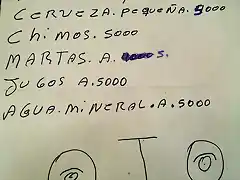 CERVEZA.PEQUEÑA.5000
Chimos.5000
MARTAS.A.
JUGOS A.5000
AGUA.MiNERAL.A.5000